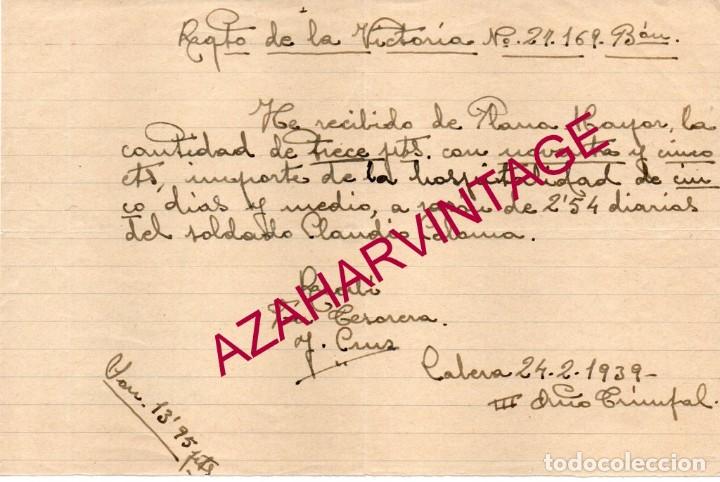 Regto de la Victoria No. 27. 169. Bón.
He recibido de Plana Mayor, la
cantidad de trece pts. con noventa y cinco
cts, importe de la hospitalidad de cin
co dias y medio, a razon de 2'54 diarias
del soldado Claudio
Recibi
La Tesorera.
J. Cruz
Cabeza 24-2-1939-
III Año Triunfal.
Son. 13'95 pts
AZAHARVINTAGE
todocoleccion